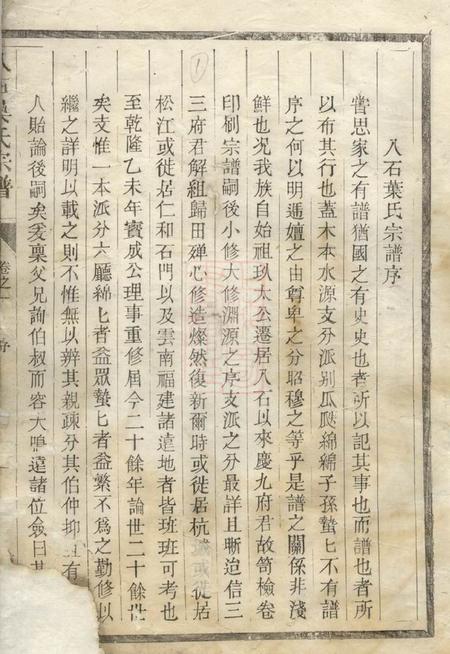 入石葉氏宗譜序
嘗思家之有譜猶國之有史史也者所以記其事也而譜也者所
以布其行也蓋木本水源支分派別瓜瓞綿綿子孫蟄匕不有譜
序之何以明遞嬗之由尊卑之分昭穆之等乎是譜之關係非淺
鮮也况我族自始祖玖太公遷居入石以來慶九府君故笥檢卷
印刷宗譜嗣後小修大修淵源之序支派之分最詳且晰迨信三
三府君解組歸田殫心修造燦然復新爾時或徙居杭城或徙居
松江或徙居仁和石門以及雲南福建諸遠地者皆班班可考也
至乾隆乙未年賓成公理事重修屆今二十餘年論世二十餘世
矣支惟一本派分六廳綿匕者益眾蟄匕者益繁不為之勤修以
繼之詳明以載之則不惟無以辨其親疎分其伯仲抑且有
人貽論後嗣矣爰稟父兄詢伯叔而容大鳴遠諸位僉曰其
氏宗譜
卷之一
序
1